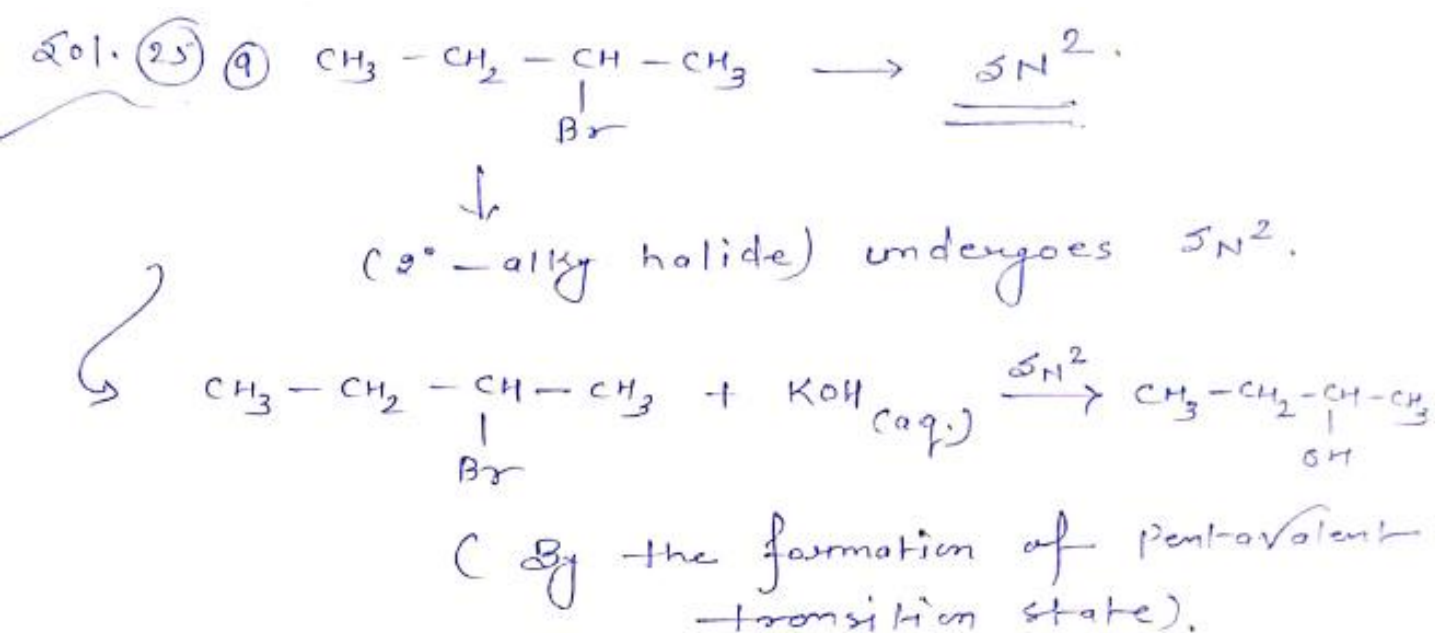 Sol. 25 a CH₃ - CH₂ - CH - CH₃ → SN².
|
Br
↓
(2° - alky halide) undergoes SN².
CH₃ - CH₂ - CH - CH₃ + KOH (aq.) SN² → CH₃ - CH₂ - CH - CH₃
| |
Br OH
( By the formation of pentavalent
transition state).